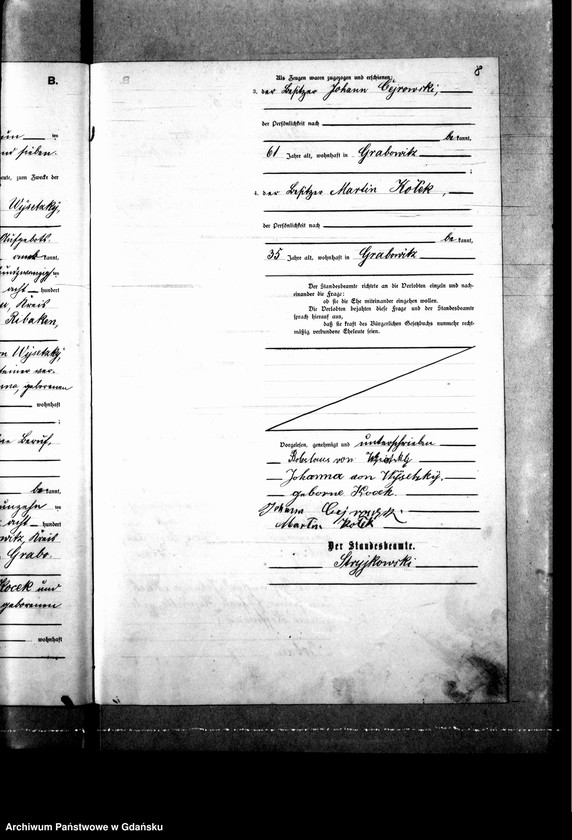 B.
8
un
nd sieben.
eute, zum Zwecke der
Wysetzky,
Aufgebots
kannt,
acht hundert
Kreis
Ribaken,
von Wysetzky,
geborenen
wohnhaft
Beruf,
be kannt,
acht hundert
Kreis
Grabo-
Kocek und
geborenen
wohnhaft
Als Zeugen waren zugezogen und erschienen:
3. der Besitzer Johann Cejrowski,
der Persönlichkeit nach
be kannt,
61 Jahre alt, wohnhaft in Grabowitz
;
4. der Besitzer Martin Kołek,
der Persönlichkeit nach
be kannt,
35 Jahre alt, wohnhaft in Grabowitz
Der Standesbeamte richtete an die Verlobten einzeln und nach-
einander die Frage:
ob sie die Ehe miteinander eingehen wollen.
Die Verlobten bejahten diese Frage und der Standesbeamte
sprach hierauf aus,
daß sie kraft des Bürgerlichen Gesetzbuchs nunmehr recht-
mäßig verbundene Eheleute seien.
Vorgelesen, genehmigt und unterschrieben
von Wysetzky
Johanna von Wysetzky,
geborne Kocek.
Johann Cejrowski
Martin Kołek
Der Standesbeamte.
Stryjkowski
Archiwum Państwowe w Gdańsku